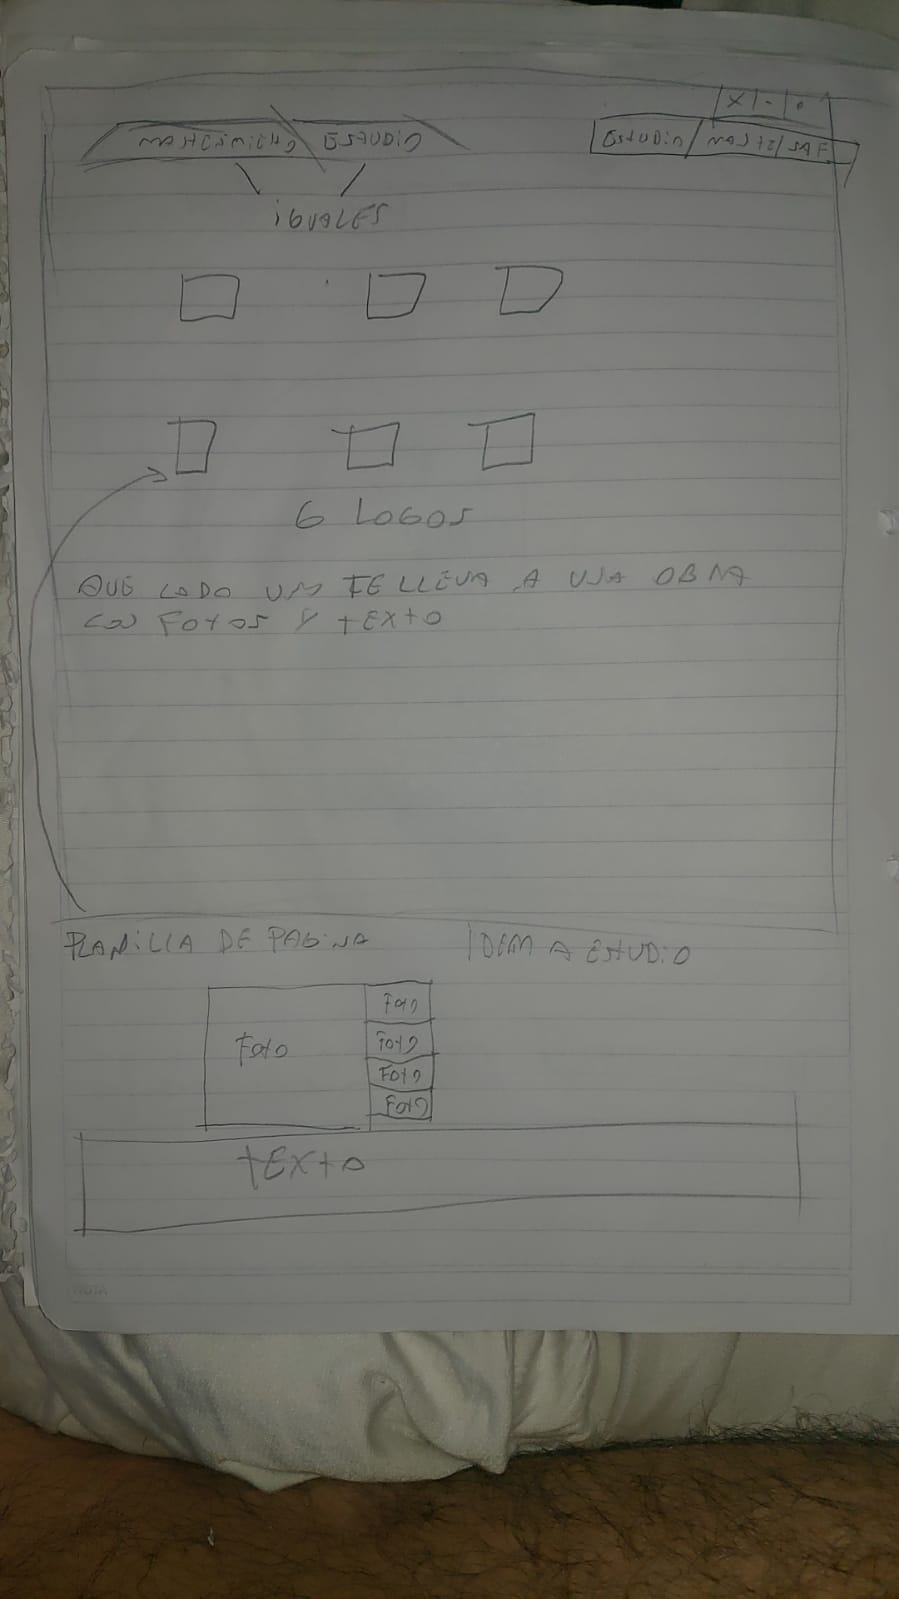 X - o
ESTUDIO
ESTUDIO
IGUALES
6 LOGOS
QUE CADO UNO TE LLEVA A UNA OBRA
CON FOTOS Y TEXTO
PLANILLA DE PAGINA IDEM A ESTUDIO
FOTO
FOTO
FOTO
FOTO
FOTO
TEXTO